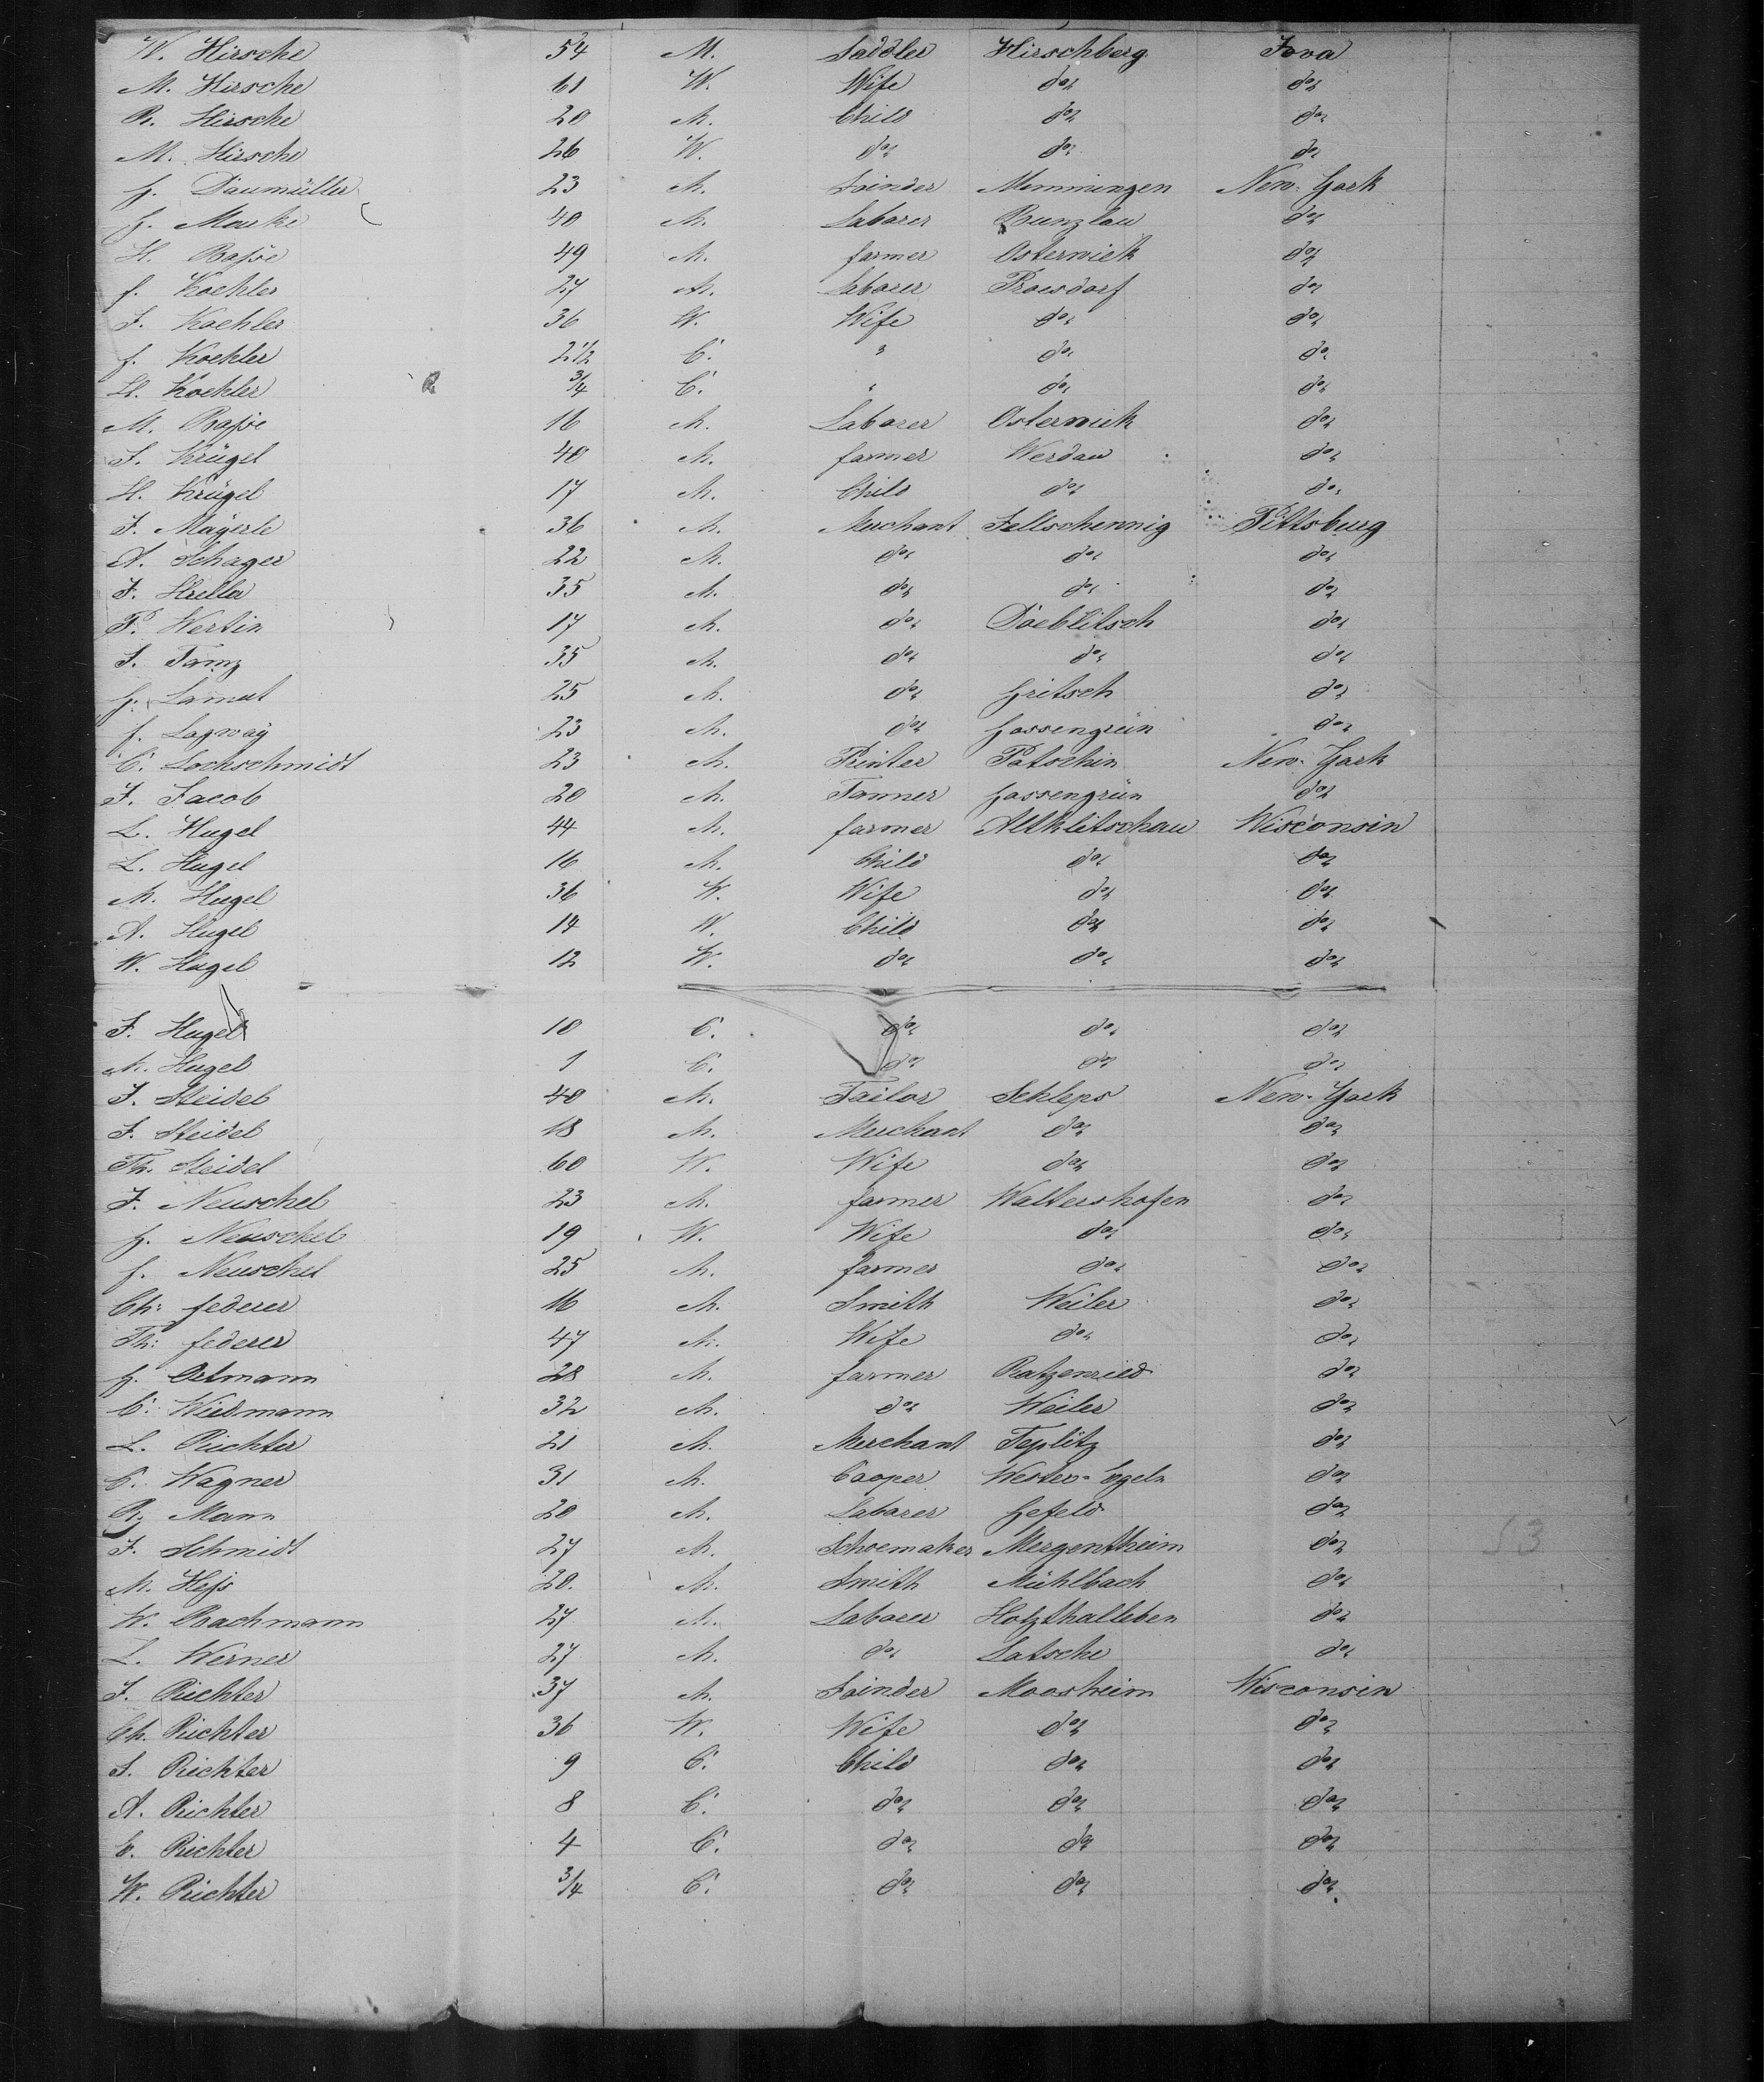 W. Hirsche 54 M. Saddler Hirschberg Iova
M. Hirsche 61 W. Wife do.
R. Hirsche 20 M. Child do. do.
M. Hirsche 26 W. do. do. do.
G. Daumüller 23 M. Joinder Memmingen New-York
G. Mauke 40 M. Laborer Bunzlau do.
H. Baſse 49 M. farmer Osterwiek do.
f. Koehler 27 M. Laborer do.
J. Koehler 36 W. Wife do. do.
f. Koehler 2 1/2 C. " do. do.
H. Koehler 3/4 C. " do. do.
M. Baſse 16 M. Laborer Osterwiek do.
J. Krügel 40 M. farmer Werdau do.
H. Krügel 17 M. Child do. do.
J. Mayerle 36 M. Merchant Pittsburg
A. Schager 22 M. do. do. do.
J. Hriller 35 M. do. do. do.
P. Wertin 17 M. do. Doeblitsch do.
J. 35 M. do. do. do.
G. Lamut 25 M. do. Gritsch do.
f. 23 M. do. Gossengrün do.
C. Lochschmidt 23 M. Printer Patschin New-York
J. Jacob 20 M. Tanner Gossengrün do.
L. Hugel 44 M. farmer Altklitschau Wisconsin
L. Hugel 16 M. Child do. do.
M. Hugel 36 W. Wife do. do.
A. Hugel 14 W. Child do. do.
W. Hugel 12 W. do. do. do.
J. Hugel 10 C. do. do. do.
M. Hugel 1 C. do. do. do.
J. Steidel 40 M. Tailor Schleps New-York
J. Steidel 18 M. Merchant do. do.
Th. Steidel 60 W. Wife do. do.
J. Neuschel 23 M. farmer Waltershofen do.
G. Neuschel 19 W. Wife do. do.
f. Neuschel 25 M. farmer do. do.
Ch: federer 16 M. Smith Weiler do.
Th: federer 47 M. Wife do. do.
G. Ortmann 28 M. farmer Ratzenried do.
C. Wiedmann 32 M. do. Weiler do.
L. Richter 21 M. Merchant Teplitz do.
C. Wagner 31 M. Cooper Wester-Egeln do.
R. Mann 20 M. Laborer Gefeld do.
J. Schmidt 27 M. Schoemaker Mergentheim do.
M. Heſs 20. M. Smith Mühlbach do.
W. Bachmann 27 M. Laborer Holzthalleben do.
L. Werner 27 M. do. Latsche do.
J. Richter 37 M. Joinder Moosheim Wisconsin
Ch. Richter 36 W. Wife do. do.
J. Richter 9 C. Child do. do.
A. Richter 8 C. do. do. do.
E. Richter 4 C. do. do do.
W. Richter 3/4 C. do. do. do.